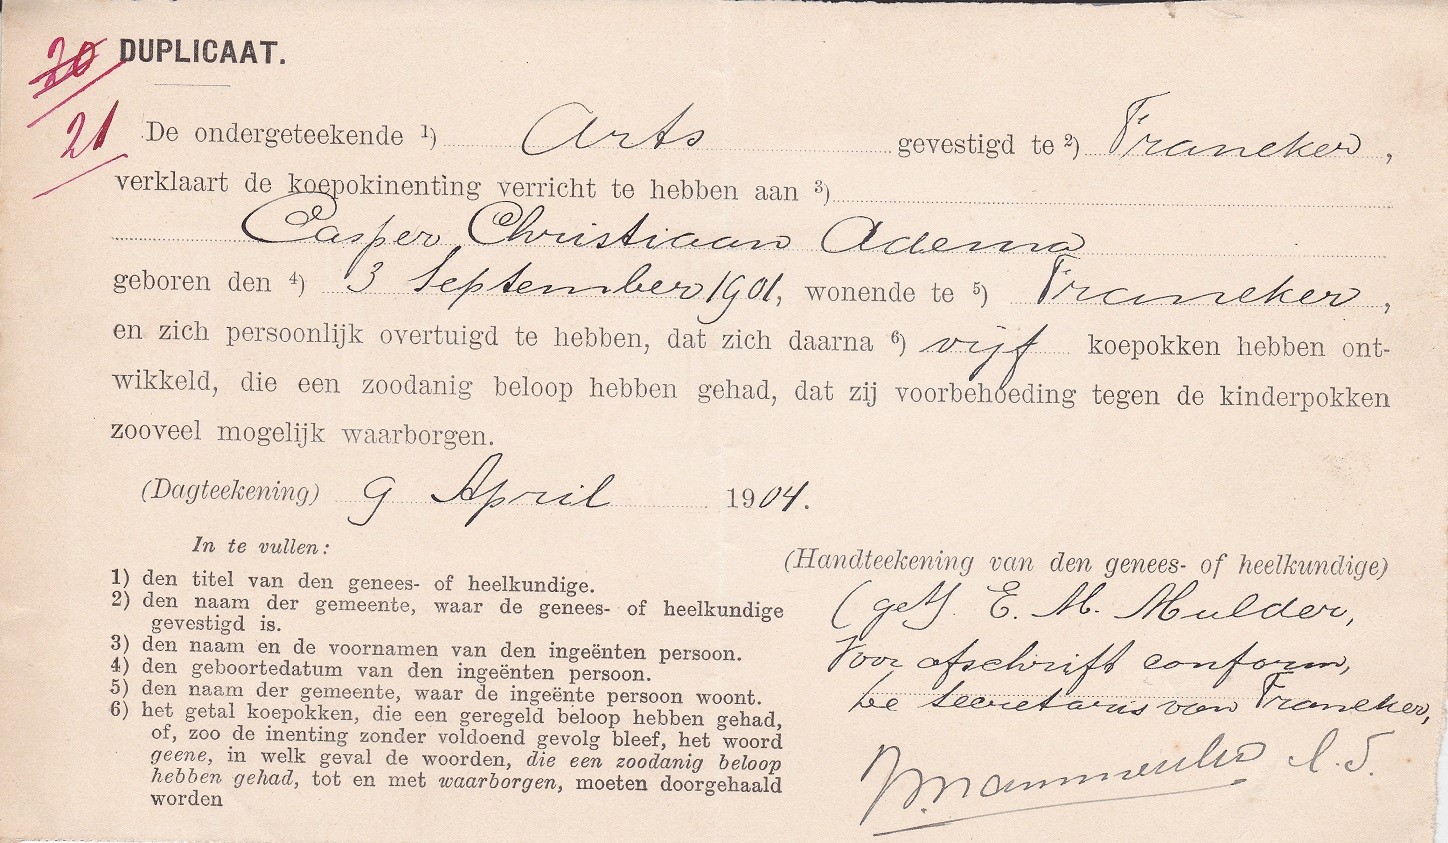 20 DUPLICAAT.
21
De ondergeteekende 1) Arts gevestigd te 2) Franeker,
verklaart de koepokinenting verricht te hebben aan 3)
Casper Christiaan Adema
geboren den 4) 3 September 1901, wonende te 5) Franeker,
en zich persoonlijk overtuigd te hebben, dat zich daarna 6) vijf koepokken hebben ont-
wikkeld, die een zoodanig beloop hebben gehad, dat zij voorbehoeding tegen de kinderpokken
zooveel mogelijk waarborgen.
(Dagteekening) 9 April 1904.
In te vullen:
1) den titel van den genees- of heelkundige.
2) den naam der gemeente, waar de genees- of heelkundige
gevestigd is.
3) den naam en de voornamen van den ingeënten persoon.
4) den geboortedatum van den ingeënten persoon.
5) den naam der gemeente, waar de ingeënte persoon woont.
6) het getal koepokken, die een geregeld beloop hebben gehad,
of, zoo de inenting zonder voldoend gevolg bleef, het woord
geene, in welk geval de woorden, die een zoodanig beloop
hebben gehad, tot en met waarborgen, moeten doorgehaald
worden
(Handteekening van den genees- of heelkundige)
(get). E. M. Mulder,
Voor afschrift conform,
De secretaris van Franeker,
l. S.